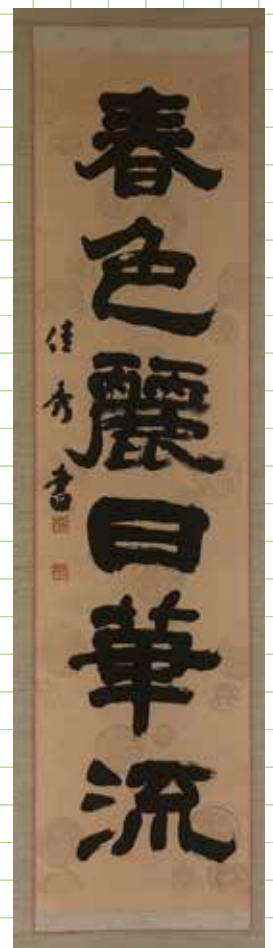 春色麗日華流
佳秀書